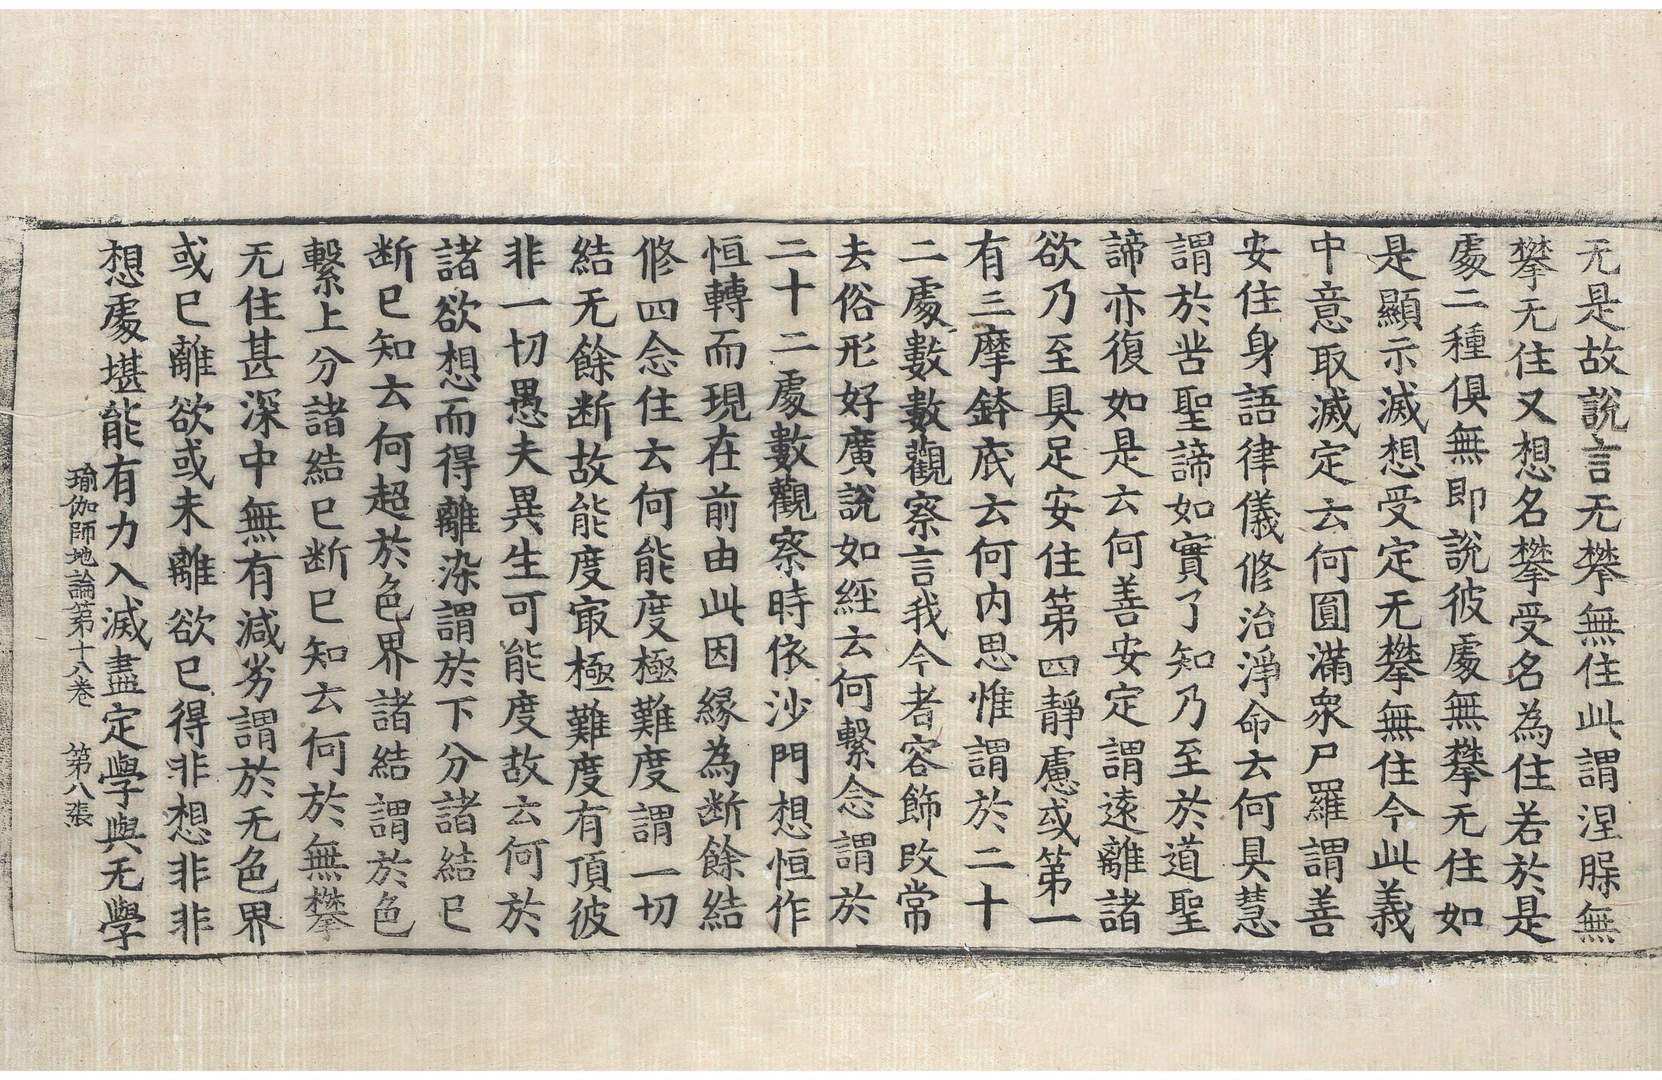 无是故說言无攀無住此謂涅脲無
攀无住又想名攀受名為住若於是
處二種俱無即說彼處無攀无住如
是顯示滅想受定无攀無住今此義
中意取滅定云何圓滿衆尸羅謂善
安住身語律儀修治淨命云何具慧
謂於苦聖諦如實了知乃至於道聖
諦亦復如是云何善安定謂遠離諸
欲乃至具足安住第四靜慮或第一
有三摩鉢底云何內思惟謂於二十
二處數數觀察言我今者容飾改常
去俗形好廣說如經云何繫念謂於
二十二處數觀察時依沙門想恒作
恒轉而現在前由此因緣為断餘結
修四念住云何能度極難度謂一切
結无餘断故能度㝡極難度有頂彼
非一切愚夫異生可能度故云何於
諸欲想而得離染謂於下分諸結已
断已知云何超於色界諸結謂於色
繫上分諸結已断已知云何於無攀
无住甚深中無有減劣謂於无色界
或已離欲或未離欲已得非想非非
想處堪能有力入滅盡定學與无學
瑜伽師地論第十八卷 第八張